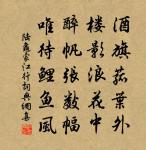 酒旗菰葉外
楼影浪花中
醉帆張數幅
唯待鯉魚風
陸龜蒙江行詞典網集